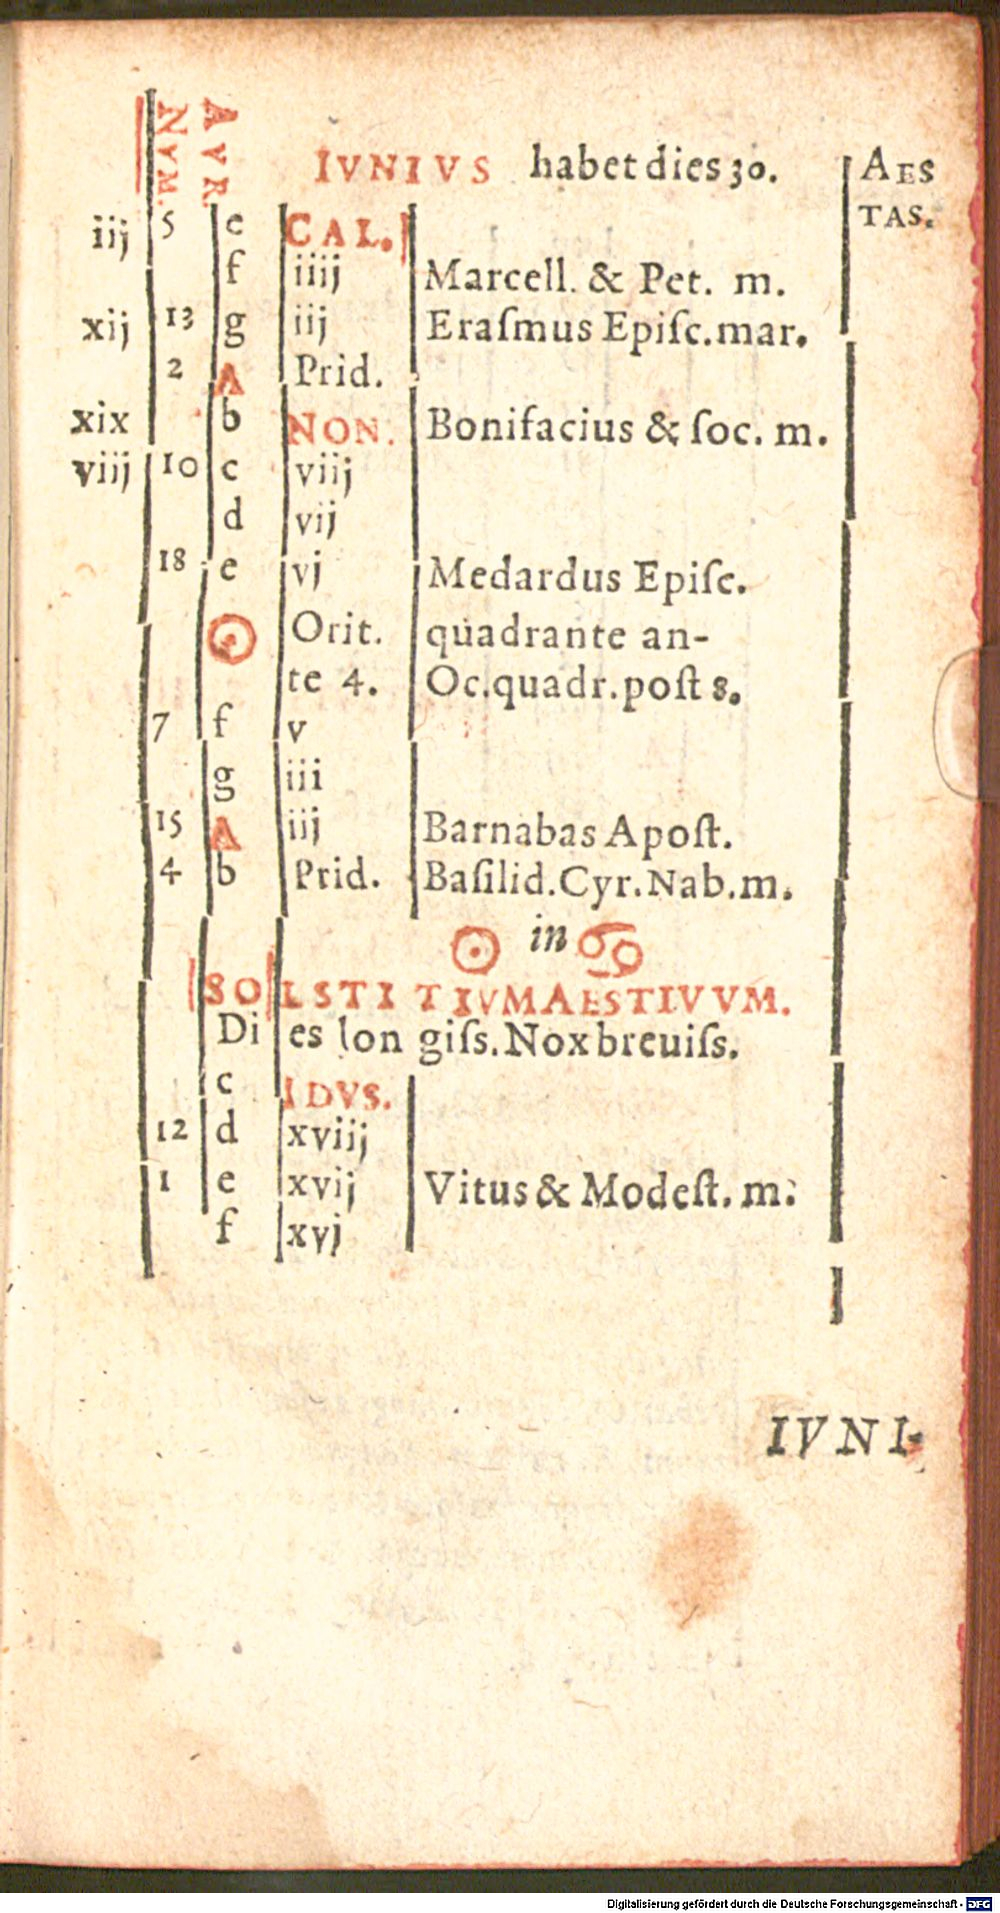 AVR. NVM.
IVNIVS habet dies 30. AESTAS.
iij 5 e CAL.
f iiij Marcell. & Pet. m.
xij 13 g iij Eraſmus Epiſc. mar.
2 A Prid.
xix b NON. Bonifacius & ſoc. m.
viij 10 c viij
d vij
18 e vj Medardus Epiſc.
☉ Orit. quadrante an-
te 4. Oc. quadr. poſt 8.
7 f v
g iii
15 A iij Barnabas Apoſt.
4 b Prid. Baſilid. Cyr. Nab. m.
☉ in ♋
SOLSTITIVM AESTIVVM.
Dies longiſs. Nox breuiſs.
c IDVS.
12 d xviij
1 e xvij Vitus & Modeſt. m.
f xvj
IVNI-
Digitalisierung gefördert durch die Deutsche Forschungsgemeinschaft - DFG